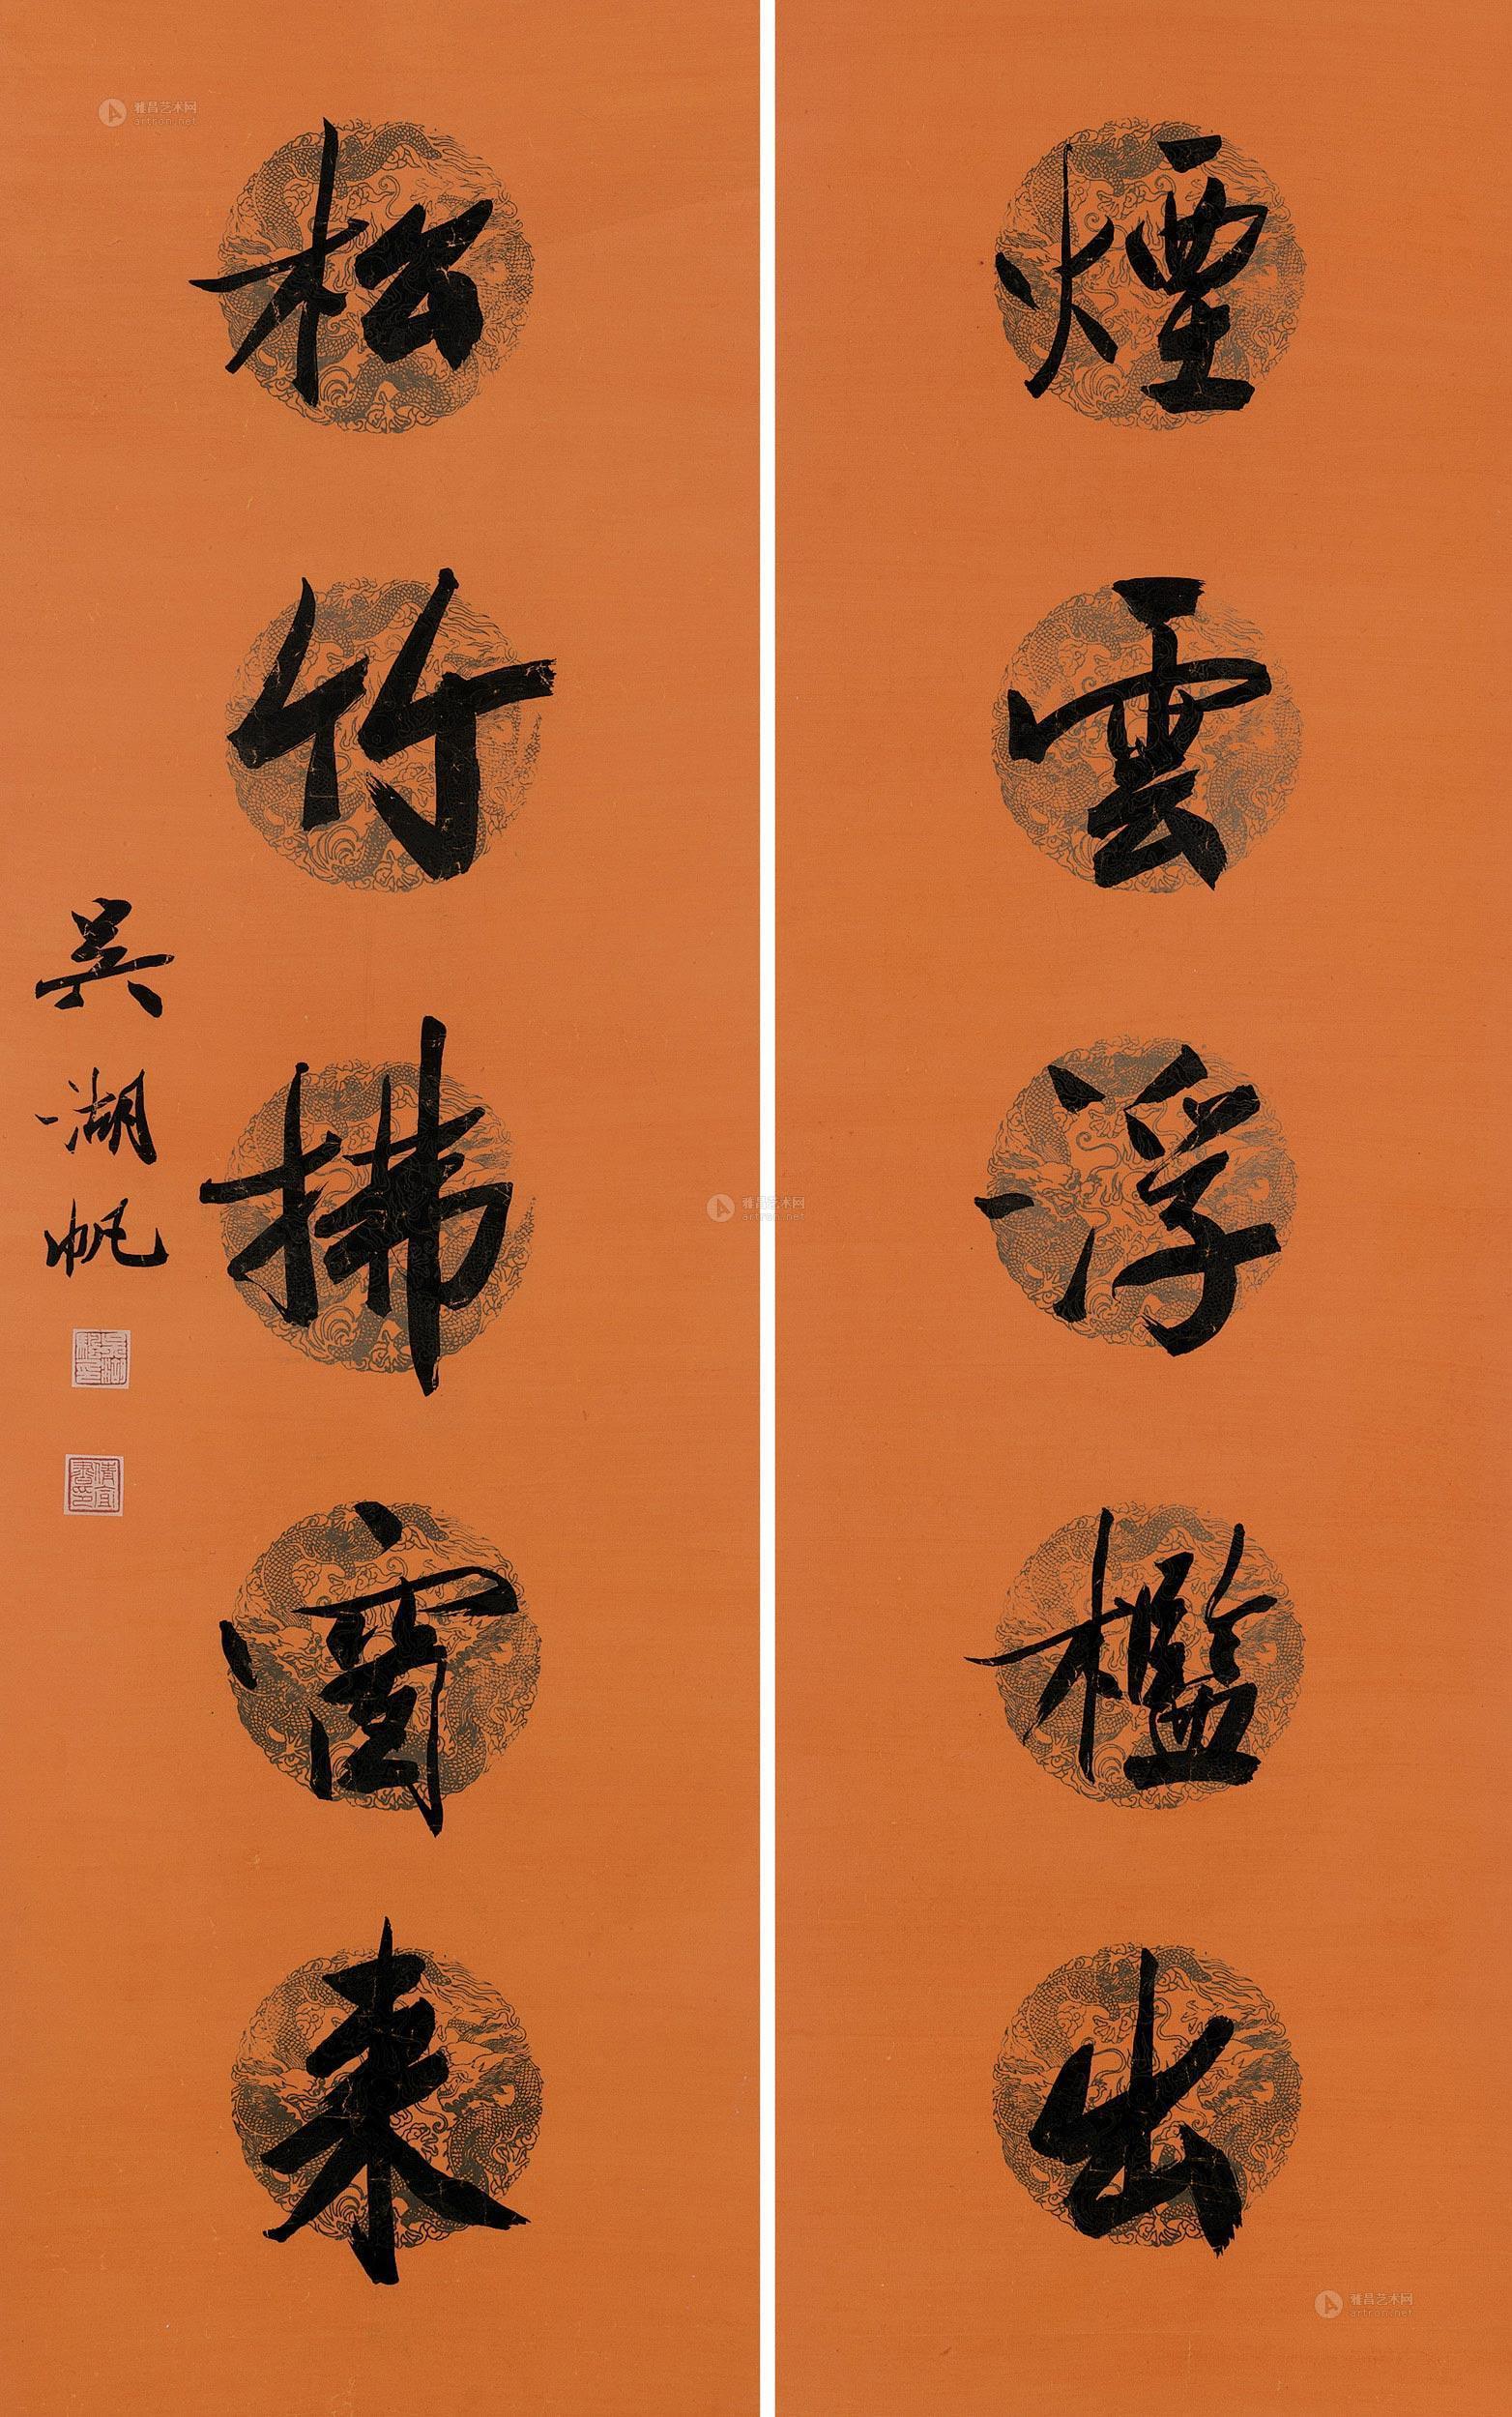 煙雲浮檻出
松竹拂窗來
吳湖帆
雅昌艺术网
artron.net
雅昌艺术网
artron.net
雅昌艺术网
artron.net